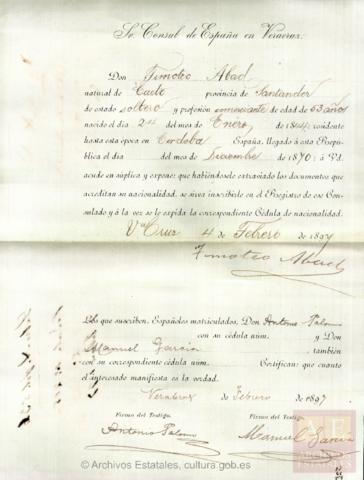 Sr. Consul de España en Veracruz:
Don Timoteo Abad
natural de provincia de Santander
de estado soltero y profesión comerciante de edad de 53 años
nacido el dia 24 del mes de Enero de 1844: residente
hasta esta época en Cordoba España, llegado á esta Repú-
blica el dia del mes de Diciembre de 1870: á Vd.
acude en súplica y expone: que habiéndosele extraviado los documentos que
acreditan su nacionalidad, se sirva inscribirle en el Registro de ese Con-
sulado y á la vez se le expida la correspondiente Cédula de nacionalidad.
Va Cruz 4 de Febrero de 1897
Timoteo Abad
Los que suscriben, Españoles matriculados, Don Antonio Palomo
con su cédula núm. y Don
Manuel Garcia también
con su correspondiente cédula núm. Certifican: que cuanto
el interesado manifiesta es la verdad.
Veracruz de Febrero de 1897
Firma del Testigo. Firma del Testigo.
Antonio Palomo Manuel Garcia
© Archivos Estatales, cultura.gob.es